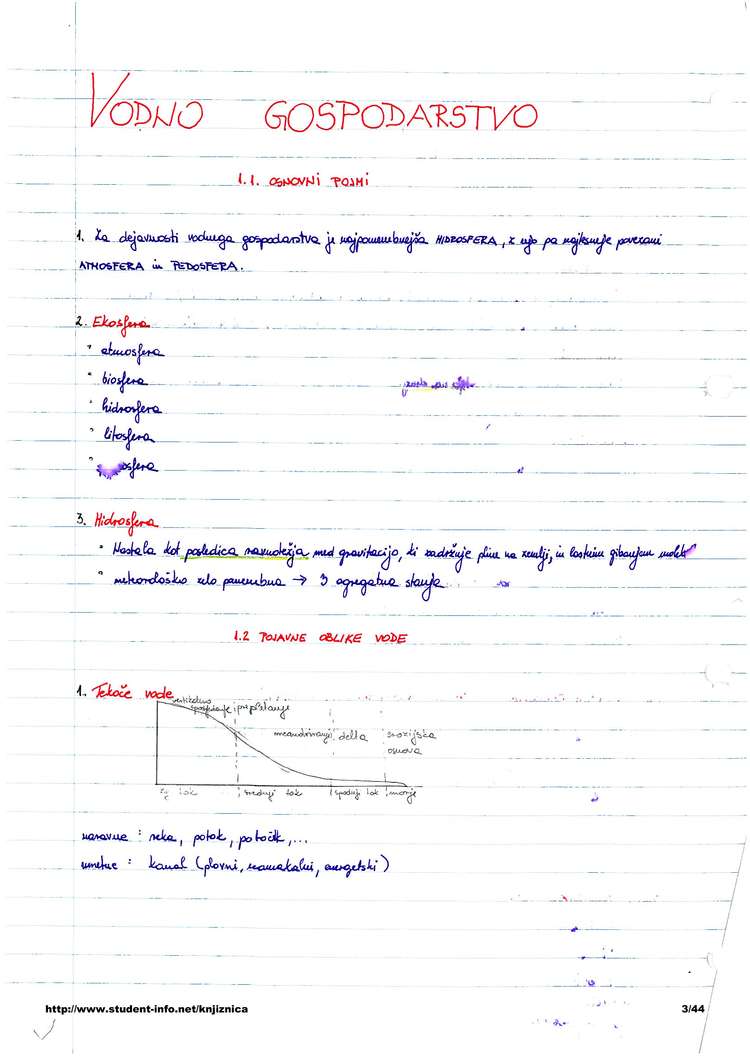 VODNO GOSPODARSTVO
1.1. OSNOVNI POJMI
1. Za dejavnosti vodnega gospodarstva je najpomembnejša HIDROSFERA, z njo pa najtesneje povezani
ATMOSFERA in PEDOSFERA.
2. Ekosfera
atmosfera
biosfera
hidrosfera
litosfera
osfera
3. Hidrosfera
• Nastala kot posledica ravnotežja med gravitacijo, ki zadržuje pline na zemlji, in lastnim gibanjem molek
• meteorološko zelo pomembna → 3 agregatna stanja
1.2 POJAVNE OBLIKE VODE
1. Tekoče vode
vertikalno
poglabljanje prepletanje
meandriranje delta erozijska
osnova
zg tok srednji tok spodnji tok morje
naravne : reka, potok, potoček, ...
umetne : kanal (plovni, namakalni, energetski)
http://www.student-info.net/knjiznica
3/44